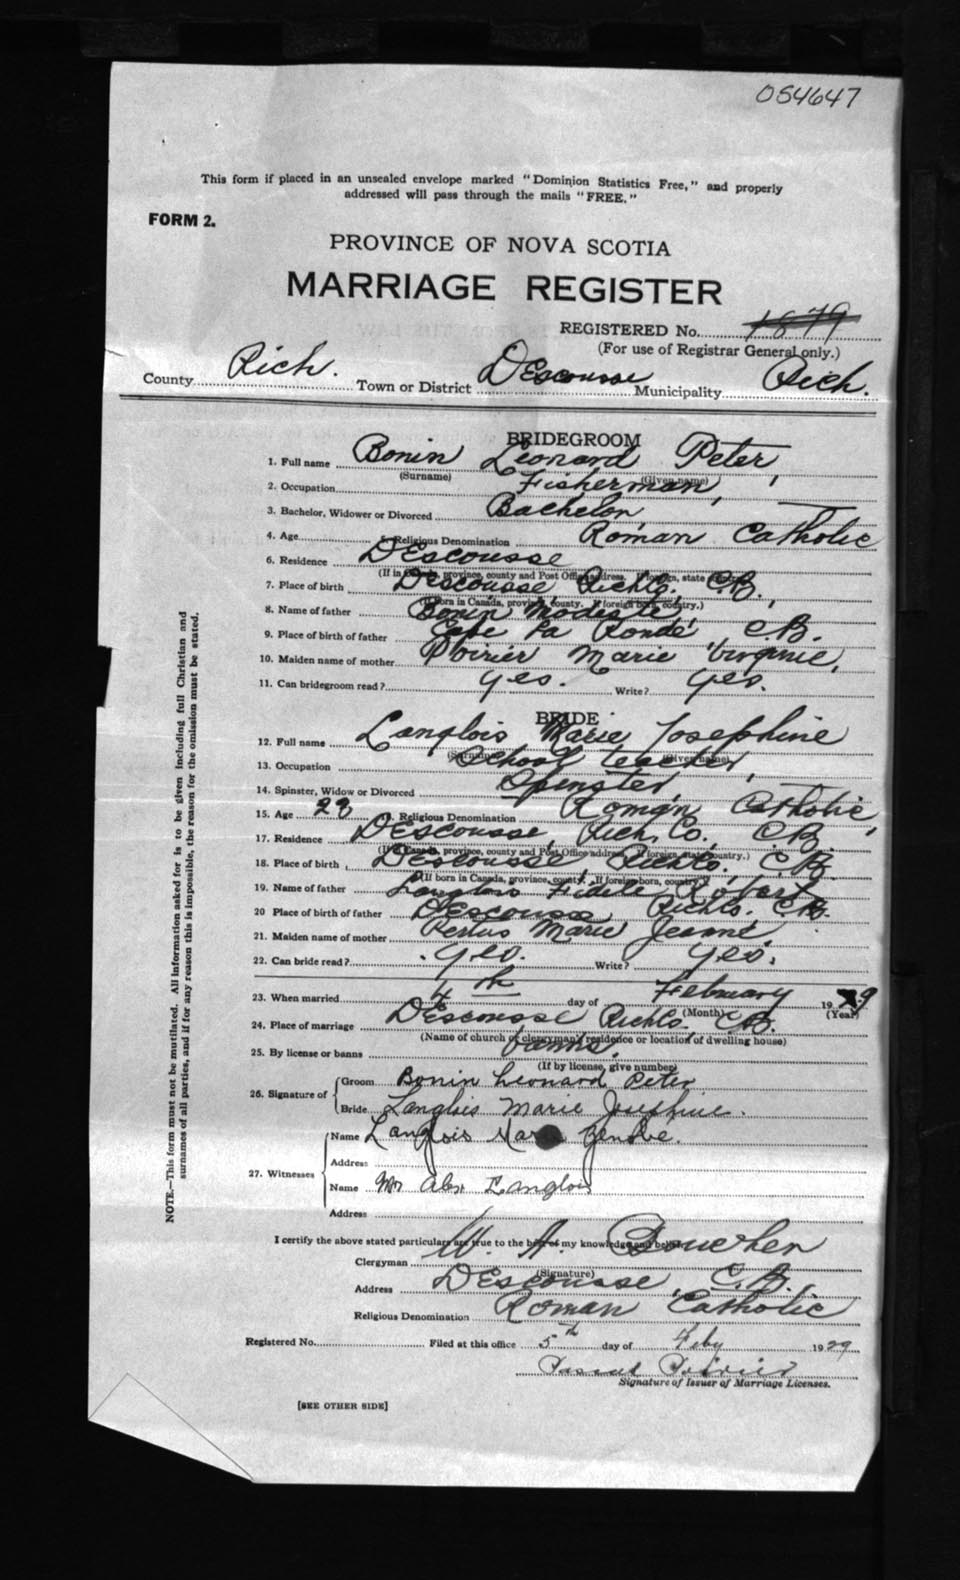 054647
This form if placed in an unsealed envelope marked "Dominion Statistics Free," and properly
addressed will pass through the mails "FREE."
FORM 2.
PROVINCE OF NOVA SCOTIA
MARRIAGE REGISTER
REGISTERED No. 1879
(For use of Registrar General only.)
County Rich. Town or District DEscousse Municipality Rich.
BRIDEGROOM
1. Full name Bonin Leonard Peter,
(Surname) (Given name)
2. Occupation Fisherman,
3. Bachelor, Widower or Divorced Bachelor
4. Age 5. Religious Denomination Roman Catholic
6. Residence DEscousse
(If in Canada, province, county and Post Office address. If foreign, state country.)
7. Place of birth DEscousse Richlo. C.B.,
(If born in Canada, province, county. If foreign born, country.)
8. Name of father Bonin Modeste,
9. Place of birth of father Cape La Ronde, C.B.
10. Maiden name of mother Poirier Marie Virginie,
11. Can bridegroom read? yes. Write? yes.
BRIDE
12. Full name Langlois Marie Josephine
(Surname) (Given name)
13. Occupation School teacher,
14. Spinster, Widow or Divorced Spinster,
15. Age 28 16. Religious Denomination Roman Catholic,
17. Residence DEscousse, Rich. Co. C.B.
(If in Canada, province, county and Post Office address. If foreign, state country.)
18. Place of birth DEscousse, Richlo. C.B.
(If born in Canada, province, county. If foreign born, country.)
19. Name of father Langlois Fidele Robert
20 Place of birth of father DEscousse Richlo. C.B.
21. Maiden name of mother Marie Jeanne,
22. Can bride read? yes. Write? yes.
23. When married 4th day of February 1929
(Month) (Year)
24. Place of marriage DEscousse Richlo. C.B.
(Name of church or clergyman's residence or location of dwelling house)
25. By license or banns banns.
(If by license, give number)
26. Signature of Groom Bonin Leonard Peter
Bride Langlois Marie Josephine.
27. Witnesses Name Langlois Marie
Address
Name Mr Alex Langlois
Address
I certify the above stated particulars are true to the best of my knowledge and belief.
Clergyman W. A. Boucher
(Signature)
Address DEscousse, C.B.
Religious Denomination Roman Catholic
Registered No. Filed at this office 5th day of Feby 1929
Pascal Poirier
Signature of Issuer of Marriage Licenses.
[SEE OTHER SIDE]
NOTE.—This form must not be mutilated. All information asked for is to be given including full Christian and
surnames of all parties, and if for any reason this is impossible, the reason for the omission must be stated.